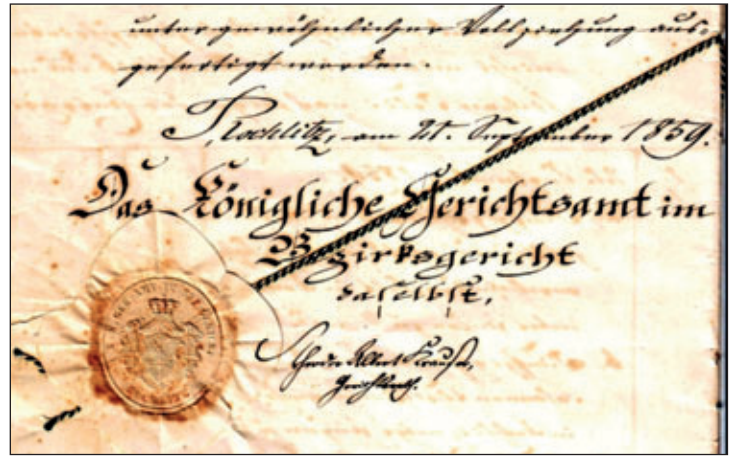 unter gewöhnlicher Vollziehung aus-
gefertigt worden.
Rochlitz, am 21. September 1859.
Das Königliche Gerichtsamt im
Bezirksgericht
daselbst,
Albert Krause,